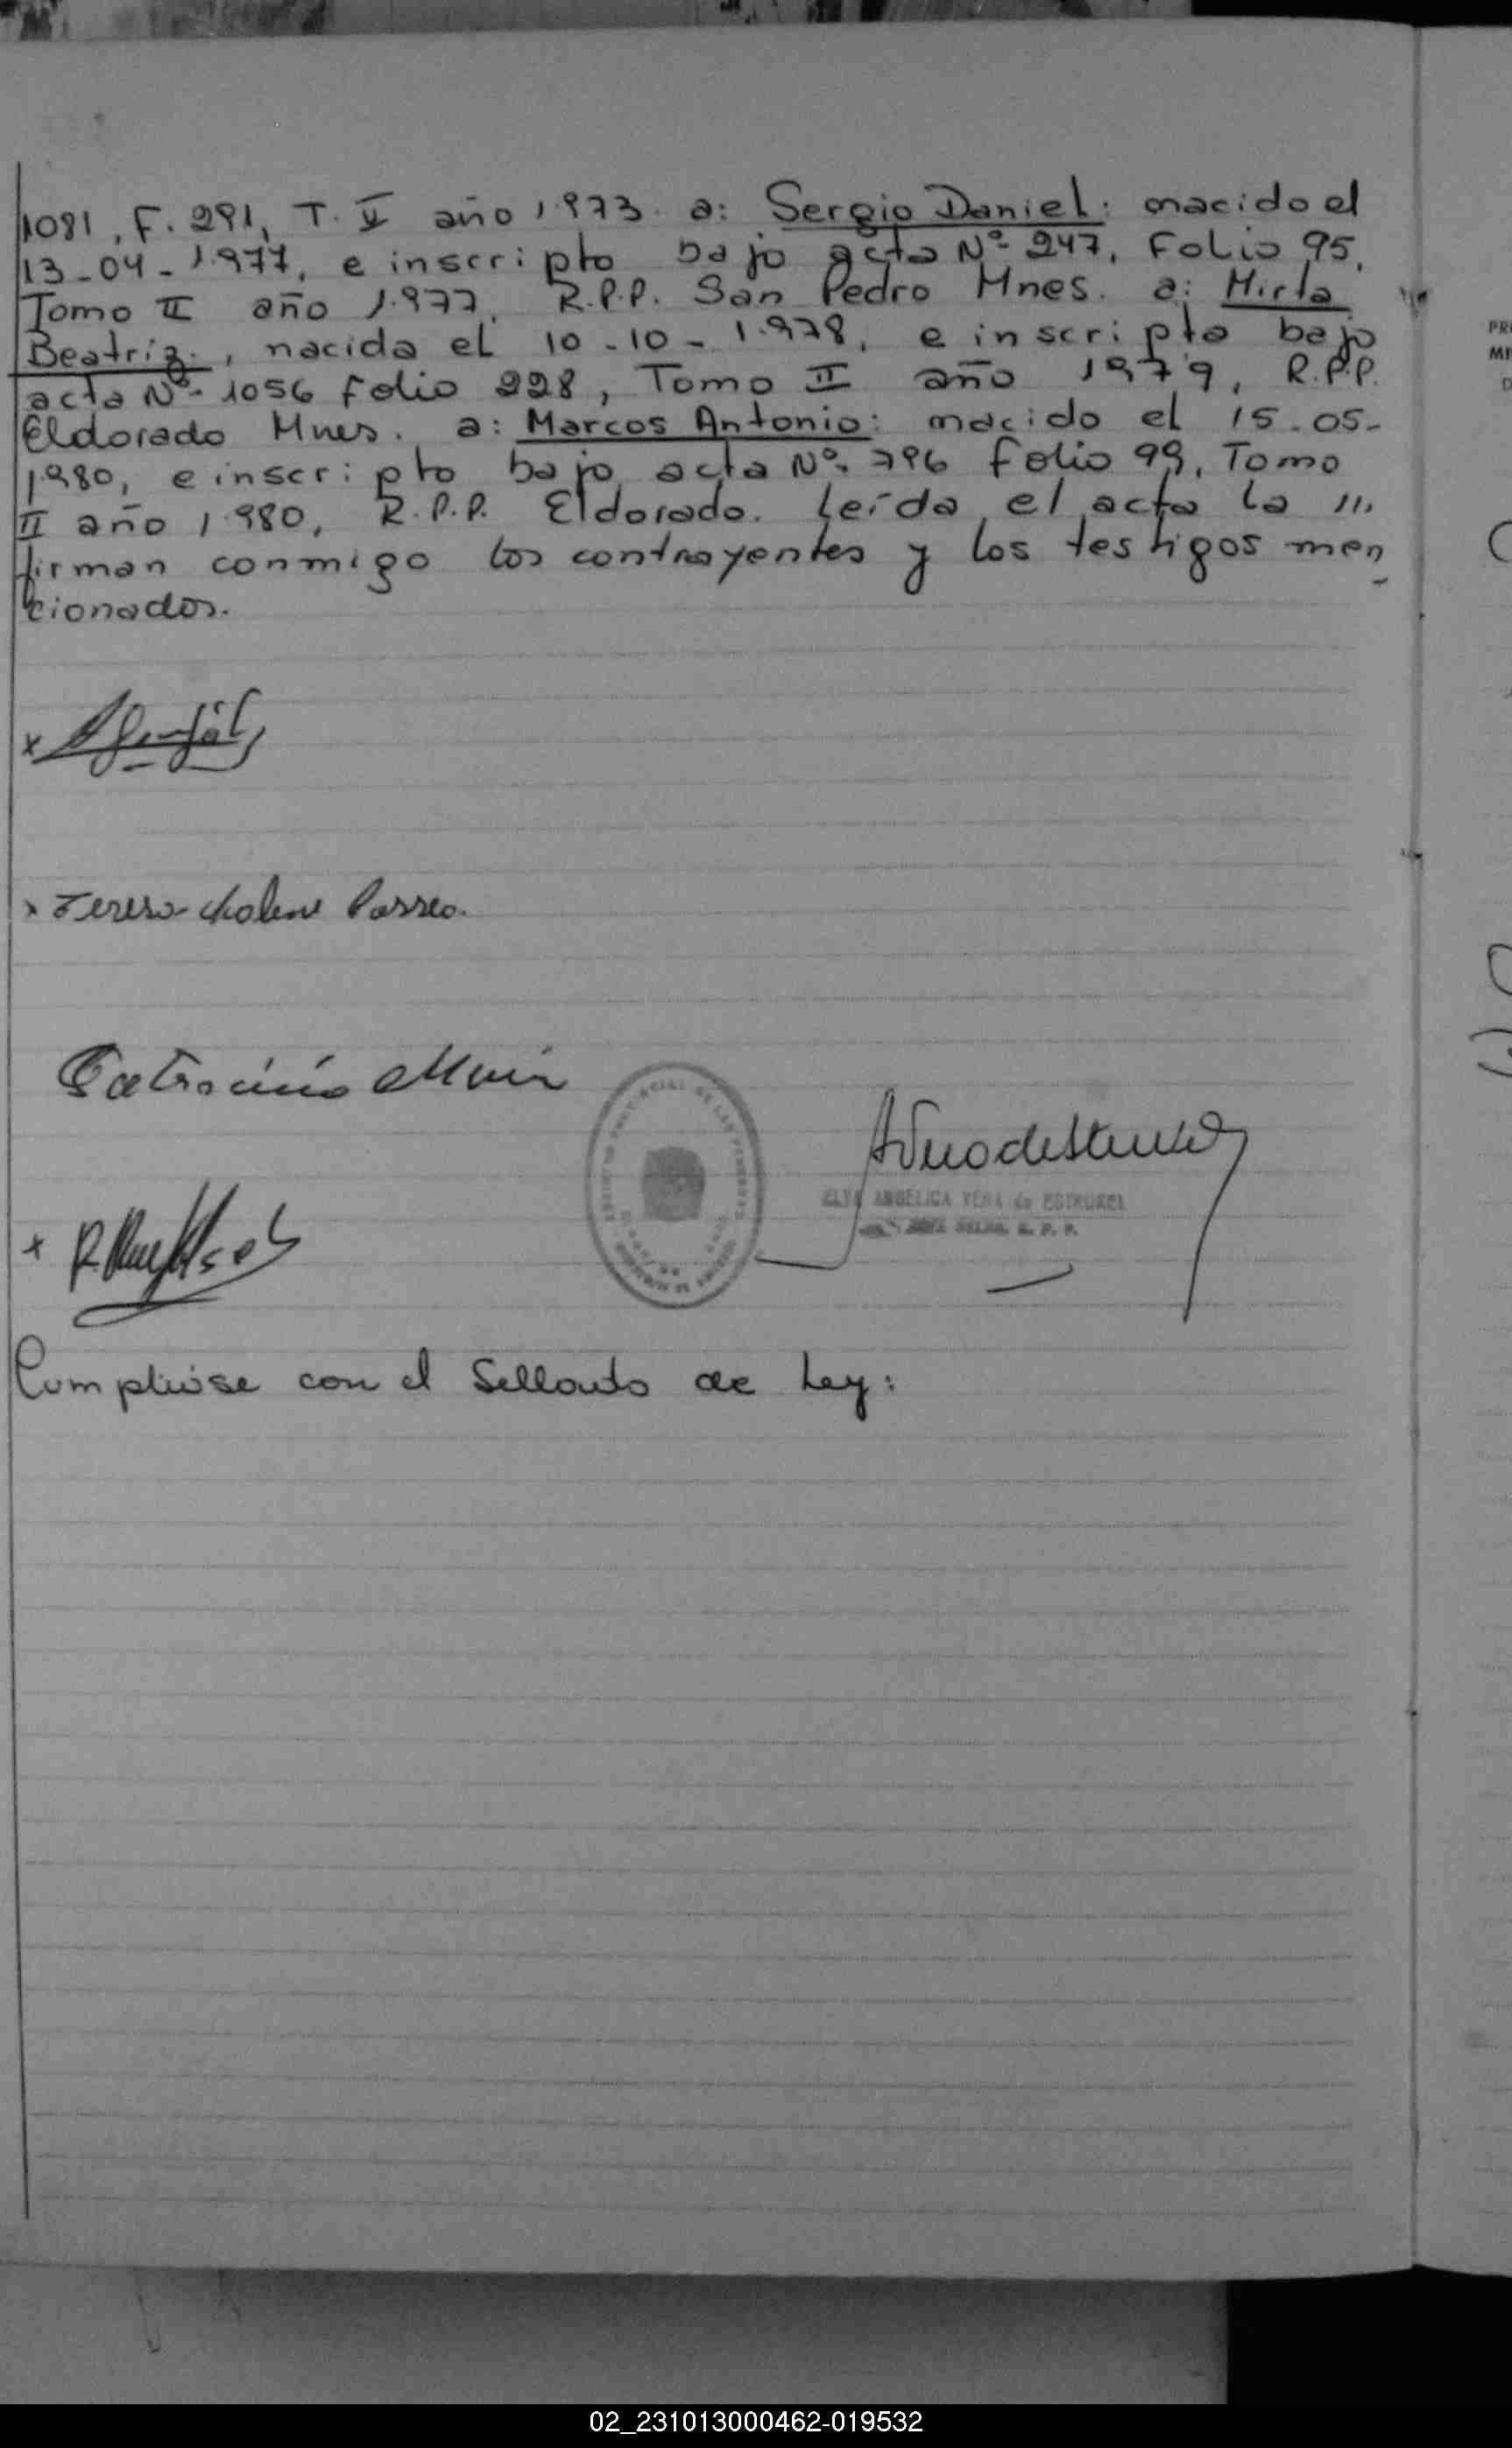 1081, F. 291, T. V año 1.973. a: Sergio Daniel: nacido el
13-04-1.977, e inscripto bajo acta Nº 247, Folio 95,
Tomo II año 1.977. R.P.P. San Pedro Mnes. a: Mirta
Beatriz., nacida el 10-10-1.978, e inscripto bajo
acta Nº 1056 Folio 228, Tomo II año 1979, R.P.P.
Eldorado Mnes. a: Marcos Antonio: nacido el 15-05-
1.980, e inscripto bajo acta Nº 796 Folio 99, Tomo
II año 1.980, R.P.P. Eldorado. Leída el acta la ///
firman conmigo los contrayentes y los testigos men
cionados.
x
x Teresa
Patrocinio
ELVA ANGELICA VERA de ESTRUXEL
R. P. P.
x
Cumpliose con el Sellado de Ley:
PR
MI
D
02_231013000462-019532